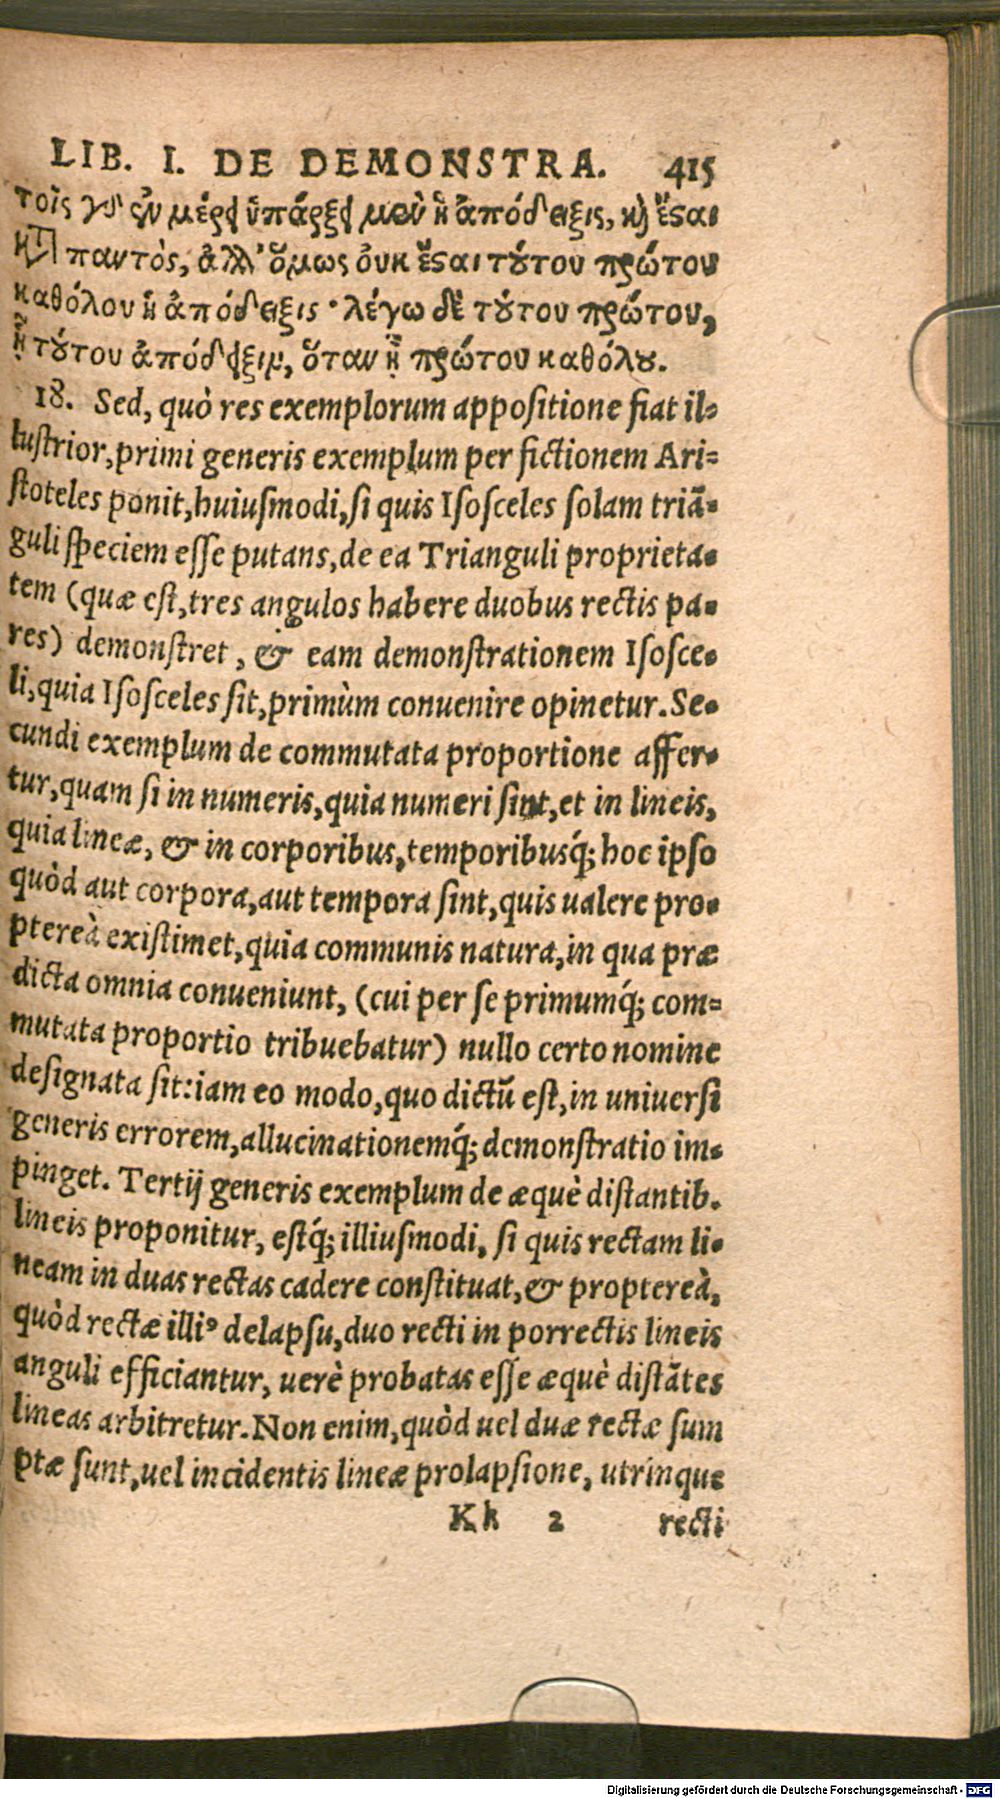 LIB. I. DE DEMONSTRA. 415
τοῖς γὸ ἐν μέρει ὑπάρξει μὲν ἡ ἀπόδειξις, κỳ ἔσται
κατὰ παντὸς, ἀλλ’ ὅμως οὐκ ἔσται τούτου πρώτου
καθόλου ἡ ἀπόδειξις · λέγω δὲ τούτου πρώτου,
ᾗ τούτου ἀπόδειξιν, ὅταν ᾖ πρώτου καθόλου.
18. Sed, quò res exemplorum appoſitione fiat il=
luſtrior, primi generis exemplum per fictionem Ari=
ſtoteles ponit, huiuſmodi, ſi quis Iſoſceles ſolam triā=
guli ſpeciem eſſe putans, de ea Trianguli proprieta=
tem (quæ eſt, tres angulos habere duobus rectis pa=
res) demonſtret, & eam demonſtrationem Iſoſce=
li, quia Iſoſceles ſit, primùm conuenire opinetur. Se=
cundi exemplum de commutata proportione affer=
tur, quam ſi in numeris, quia numeri ſint, et in lineis,
quia lineæ, & in corporibus, temporibusq́; hoc ipſo
quòd aut corpora, aut tempora ſint, quis ualere pro=
ptereà exiſtimet, quia communis natura, in qua præ
dicta omnia conueniunt, (cui per ſe primumq́; com=
mutata proportio tribuebatur) nullo certo nomine
deſignata ſit: iam eo modo, quo dictū eſt, in uniuerſi
generis errorem, allucinationemq́; demonſtratio im=
pinget. Tertij generis exemplum de æquè diſtantib.
lineis proponitur, eſtq́; illiuſmodi, ſi quis rectam li=
neam in duas rectas cadere conſtituat, & propereà,
quòd rectæ illiꝰ delapſu, duo recti in porrectis lineis
anguli efficiantur, uerè probatas eſſe æquè diſtātes
lineas arbitretur. Non enim, quòd uel duæ rectæ ſum
ptæ ſunt, uel incidentis lineæ prolapſione, utrinque
Kk 2 recti
Digitalisierung gefördert durch die Deutsche Forschungsgemeinschaft - DFG